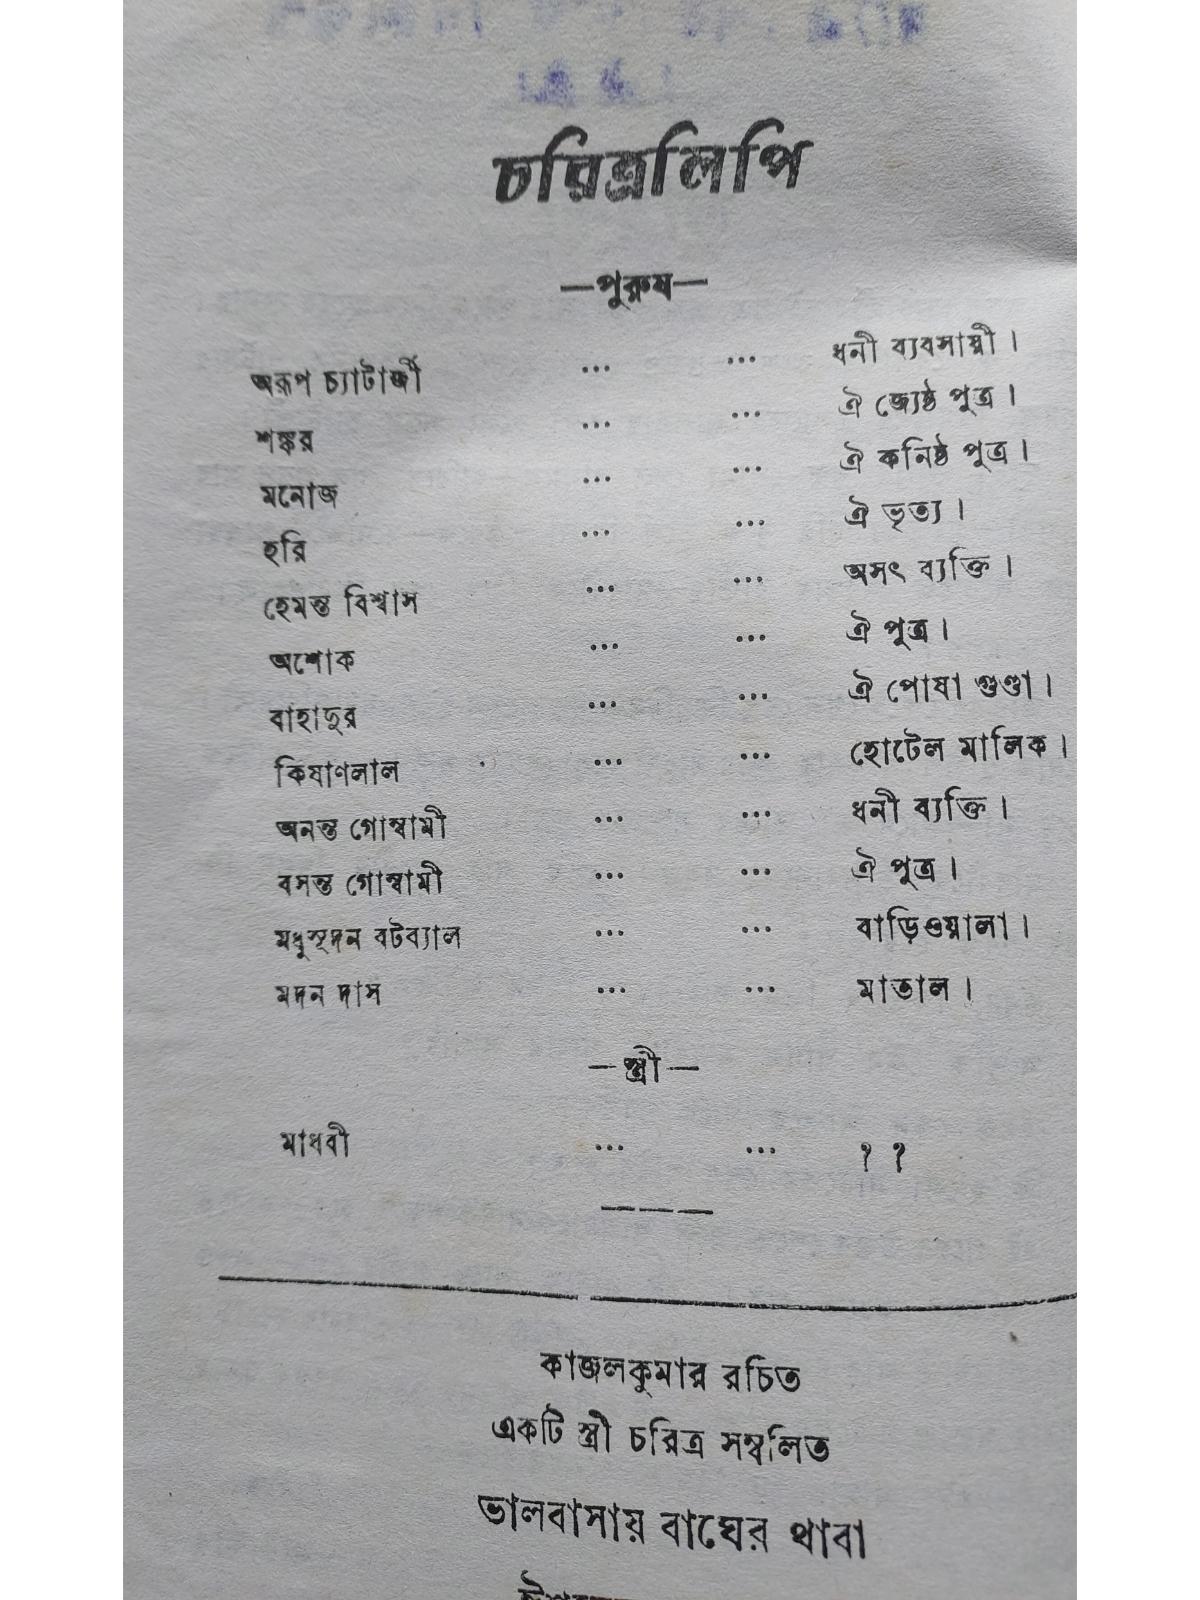 চরিত্রলিপি
—পুরুষ—
অরূপ চ্যাটার্জী ... ... ধনী ব্যবসায়ী।
শঙ্কর ... ... ঐ জ্যেষ্ঠ পুত্র।
মনোজ ... ... ঐ কনিষ্ঠ পুত্র।
হরি ... ... ঐ ভৃত্য।
হেমন্ত বিশ্বাস ... ... অসৎ ব্যক্তি।
অশোক ... ... ঐ পুত্র।
বাহাদুর ... ... ঐ পোষা গুণ্ডা।
কিষাণলাল ... ... হোটেল মালিক।
অনন্ত গোস্বামী ... ... ধনী ব্যক্তি।
বসন্ত গোস্বামী ... ... ঐ পুত্র।
মধুসূদন বটব্যাল ... ... বাড়িওয়ালা।
মদন দাস ... ... মাতাল।
—স্ত্রী—
মাধবী ... ... ? ?
কাজলকুমার রচিত
একটি স্ত্রী চরিত্র সম্বলিত
ভালবাসায় বাঘের থাবা